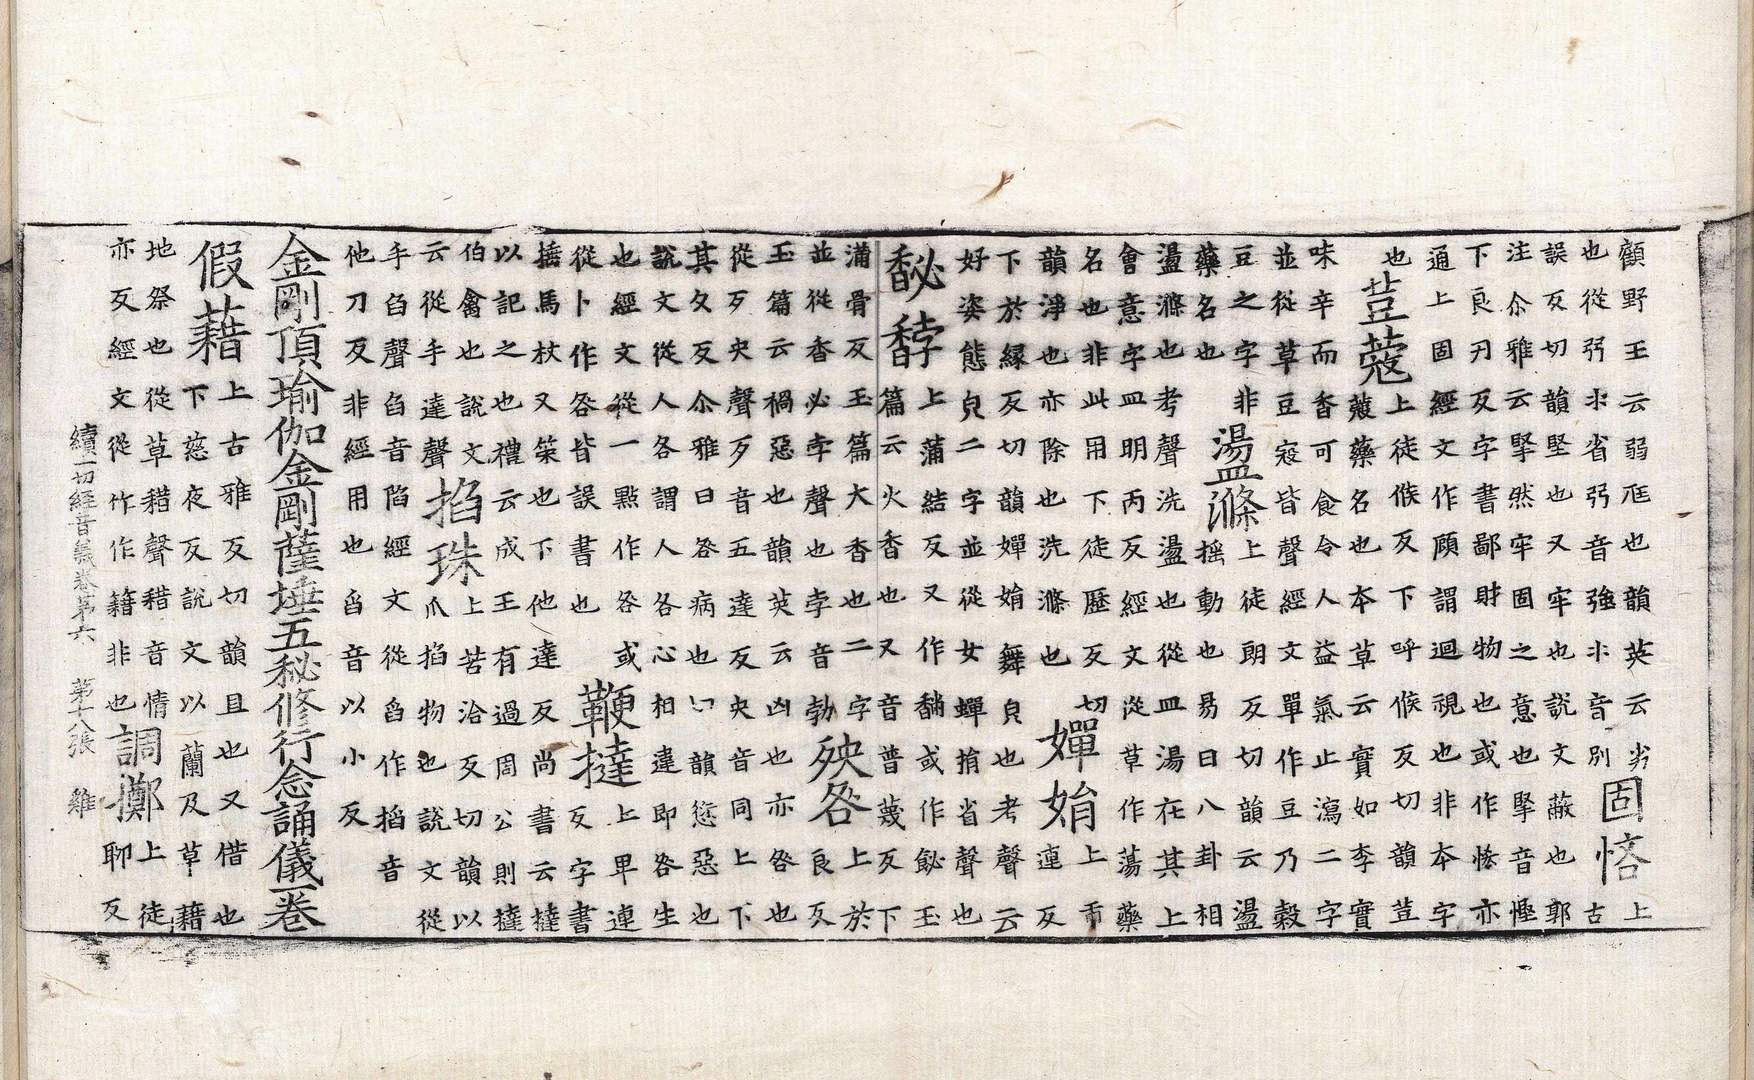 顧野王云弱尫也韻英云劣
也從弜米省弜音強米音別
固悋
上
古
誤反切韻堅也又牢也說文蔽也郭
注尒雅云掔然牢固之意也掔音慳
下良刃反字書鄙財物也或作悋亦
通上固經文作顧謂迴視也非本字
也
荳蔻
上徒候反下呼候反切韻荳
蔻藥名也本草云實如李實
味辛而香可食令人益氣止瀉二字
並從草豆寇皆聲經文單作豆乃穀
豆之字非
藥名也
盪滌
上徒朗反切韻云盪
搖動也易曰八卦相
盪滌也考聲洗盪也從皿湯在其上
會意字皿明丙反經文從草作蕩藥
名也非此用下徒歷反切
韻淨也亦除也洗滌也
嬋娟
上市
連反
下於緣反切韻嬋娟舞皃也考聲云
好姿態皃二字並從女蟬捎省聲也
馝馞
上蒲結反又作䭱或作䬛玉
篇云火香也又音普蔑反下
蒲骨反玉篇大香也二字
並從香必孛聲也孛音勃
殃咎
上於
良反
玉篇云禍惡也韻英云凶也亦咎也
從歹央聲歹音五達反央音同上下
其久反尒雅曰咎病也切韻愆惡也
說文從人各謂人各心相違即咎生
也經文從一點作咎或
從卜作咎皆誤書也
鞭撻
上卑連
反字書
捶馬杖又策也下他達反尚書云撻
以記之也禮云成王有過周公則撻
伯禽也說文
云從手達聲
掐珠
上苦洽反切韻以
爪掐物也說文從
手臽聲臽音陷經文從舀作搯音
他刀反非經用也舀音以小反
金剛頂瑜伽金剛薩埵五秘修行念誦儀一卷
假藉
上古雅反切韻且也又借也
下慈夜反說文以蘭及草藉
地祭也從草耤聲耤音情
亦反經文從竹作籍非也
調擲
上徒
聊反
續一切經音義卷第六 第十八張 雞